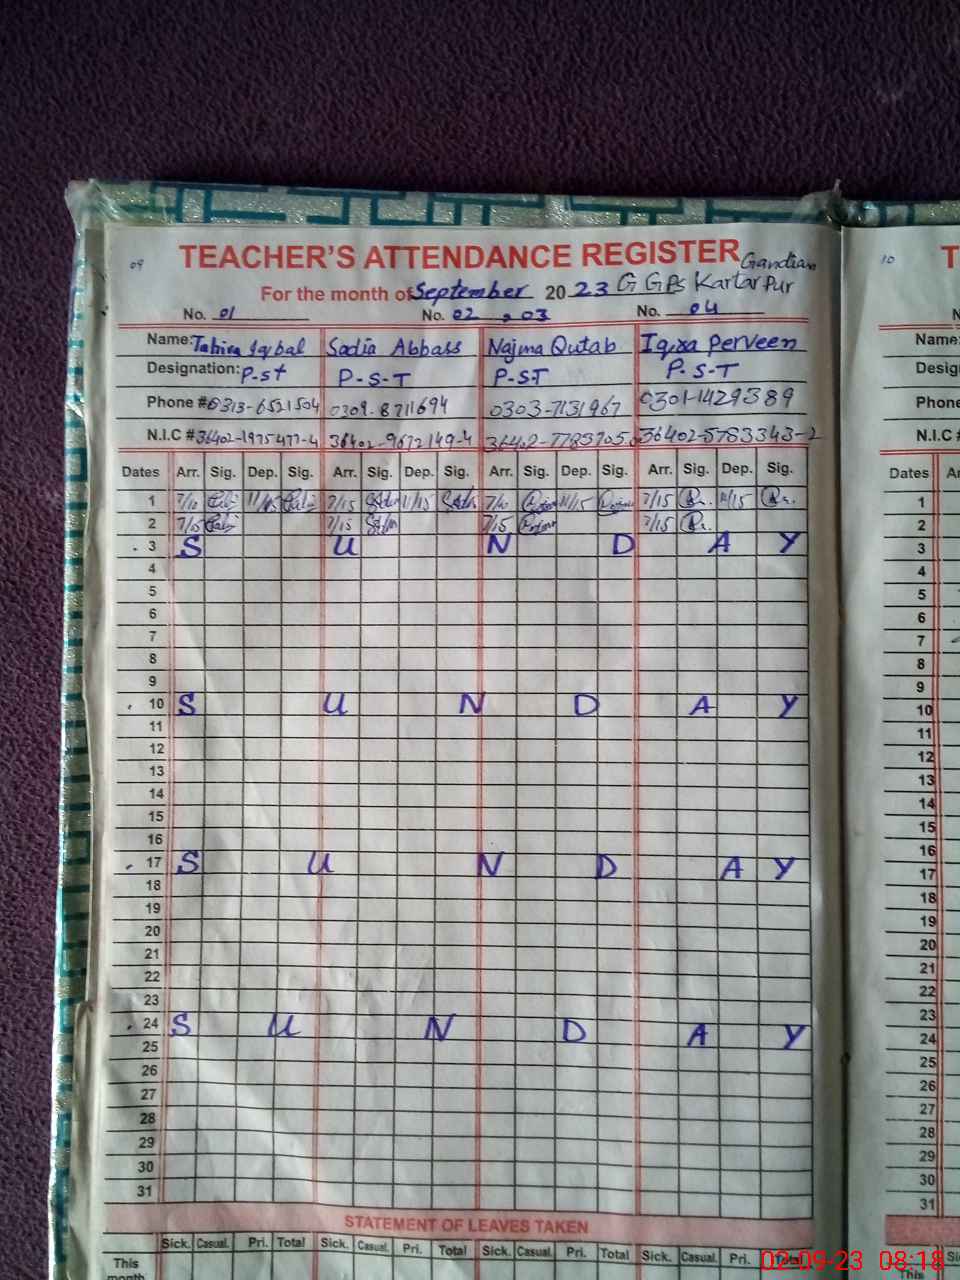 09 TEACHER'S ATTENDANCE REGISTER Gandian
For the month of September 2023 G GPs Kartar Pur
No. 01 No. 02 , 03 No. 04
Name: Tahira Iqbal Sadia Abbass Najma Qutab Iqra Perveen
Designation: P-st P-S-T P-ST P.S-T
Phone # 0313-6521504 0309-8711694 0303-7131967 0301-1429389
N.I.C # 36402-1975477-4 36402-9672149-4 36402-7783705 36402-5783343-2
Dates Arr. Sig. Dep. Sig. Arr. Sig. Dep. Sig. Arr. Sig. Dep. Sig. Arr. Sig. Dep. Sig.
1 7/10 11/15 7/15 11/15 7/10 11/15 7/15 11/15
2 7/15 7/15 7/15 7/15
3 S U N D A Y
4
5
6
7
8
9
10 S U N D A Y
11
12
13
14
15
16
17 S U N D A Y
18
19
20
21
22
23
24 S U N D A Y
25
26
27
28
29
30
31
STATEMENT OF LEAVES TAKEN
Sick. Casual. Pri. Total Sick. Casual. Pri. Total Sick. Casual. Pri. Total Sick. Casual. Pri. Total
This
month
10 T
Name:
Desig
Phone
N.I.C #
Dates Ar
1
2
3
4
5
6
7
8
9
10
11
12
13
14
15
16
17
18
19
20
21
22
23
24
25
26
27
28
29
30
31
Si
This
02-09-23 08:18